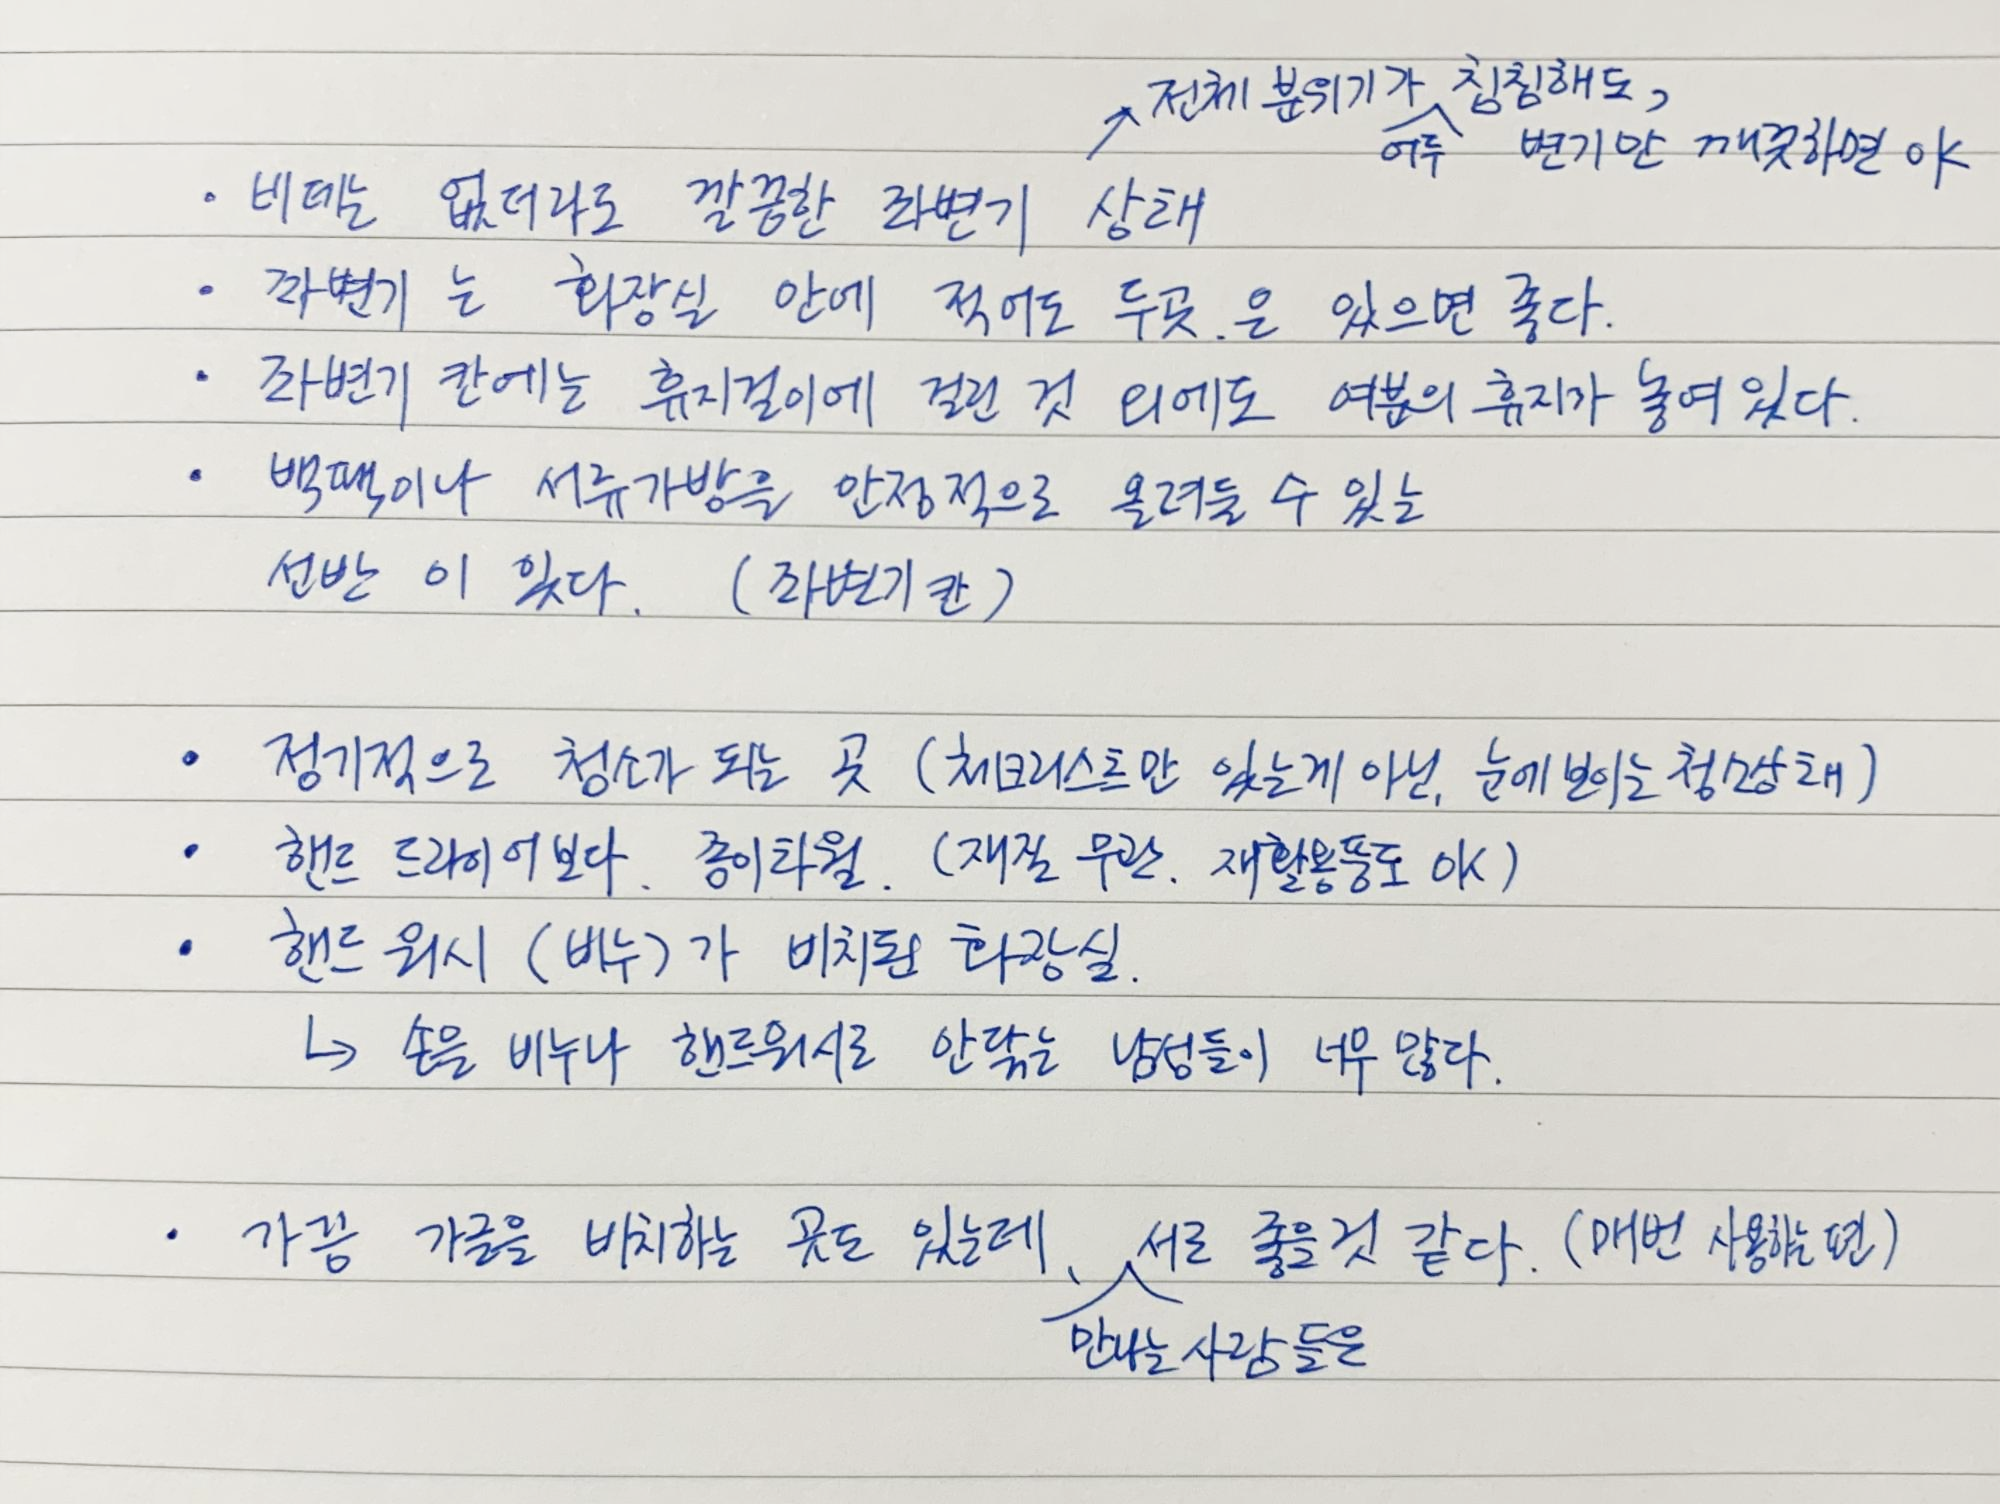 전체 분위기가 침침해도,
어두 변기만 깨끗하면 OK
· 비데는 없더라도 깔끔한 좌변기 상태
· 좌변기 는 화장실 안에 적어도 두곳.은 있으면 좋다.
· 좌변기 칸에는 휴지걸이에 걸린 것 외에도 여분의 휴지가 놓여있다.
· 백팩이나 서류가방을 안정적으로 올려둘 수 있는
선반 이 있다. (좌변기 칸)
· 정기적으로 청소가 되는 곳 (체크리스트만 있는게 아닌, 눈에 보이는 청소상태)
· 핸드 드라이어보다. 종이타월. (재질 무관. 재활용품도 OK)
· 핸드 워시 (비누)가 비치된 화장실.
↳ 손을 비누나 핸드워시로 안닦는 남성들이 너무 많다.
· 가끔 가글을 비치하는 곳도 있는데, 서로 좋을것 같다. (매번 사용하는 편)
만나는 사람들은